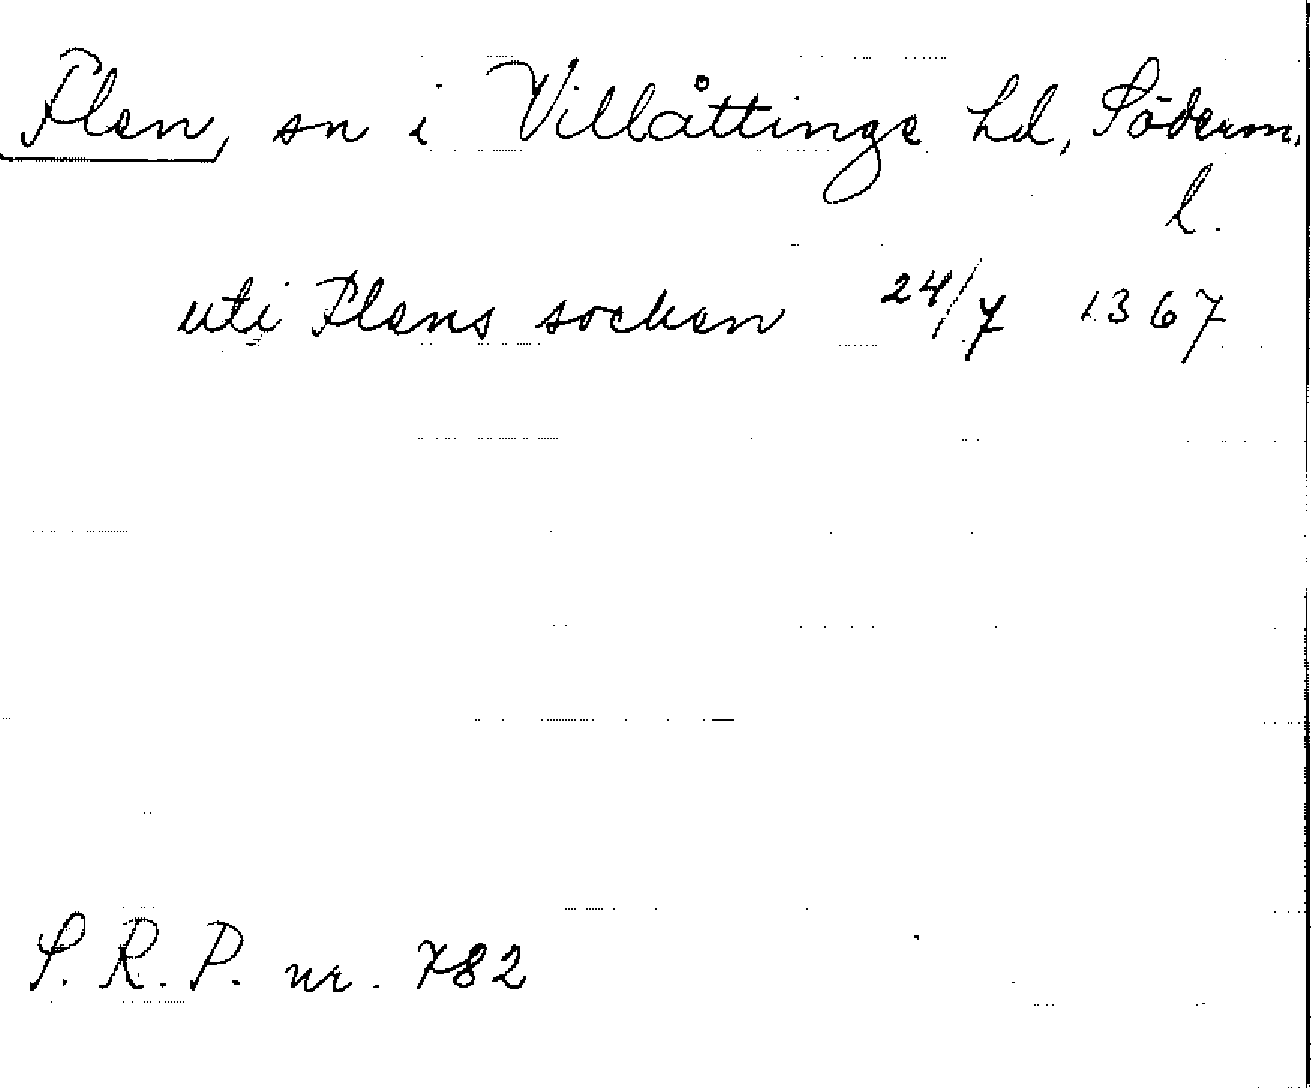 Flen, sn i Villåttinge hd, Söderm.
l.
uti Flens socken 24/7 1367
S. R. P. nr. 782